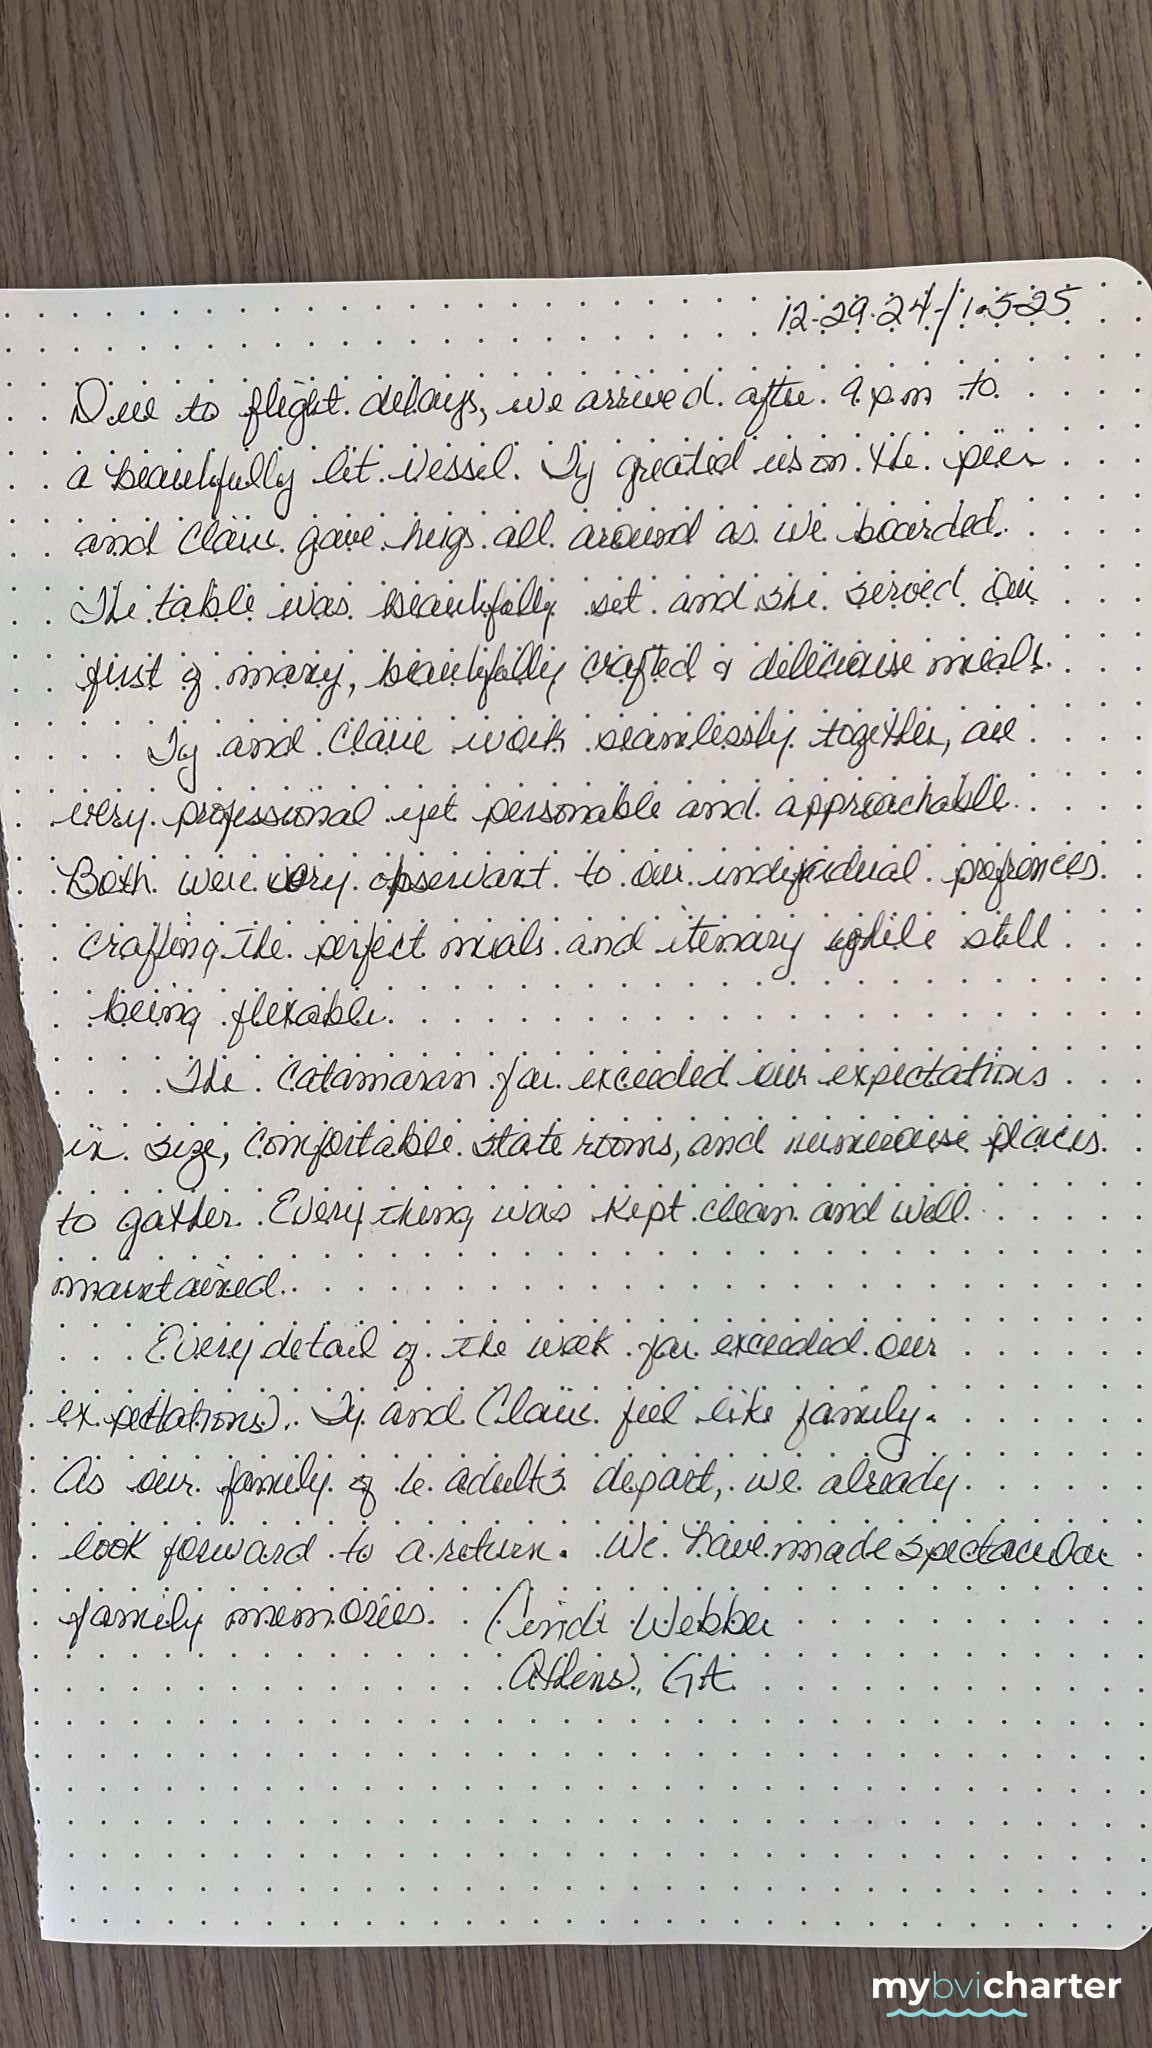 12-29-24/1-5-25
Due to flight delays, we arrived after 9 pm to
a beautifully lit vessel. Ty greated us on the pier
and Claire gave hugs all around as we boarded.
The table was beautifully set and she served our
first of many, beautifully crafted & deliciouse meals.
Ty and Claire work seamlessly together, are
very professional yet personable and approachable.
Both were very observant to our individual prefrences
crafting the perfect meals and itenary while still
being flexable.
The Catamaran far exceeded our expectations
in size, comfortable state rooms, and numerouse places
to gather. Everything was kept clean and well
maintained.
Every detail of the week far exceeded our
expectations. Ty and Claire feel like family.
As our family of 6 adults depart, we already
look forward to a return. We have made spectacular
family memories. Cindi Webber
Athens, GA
mybvicharter